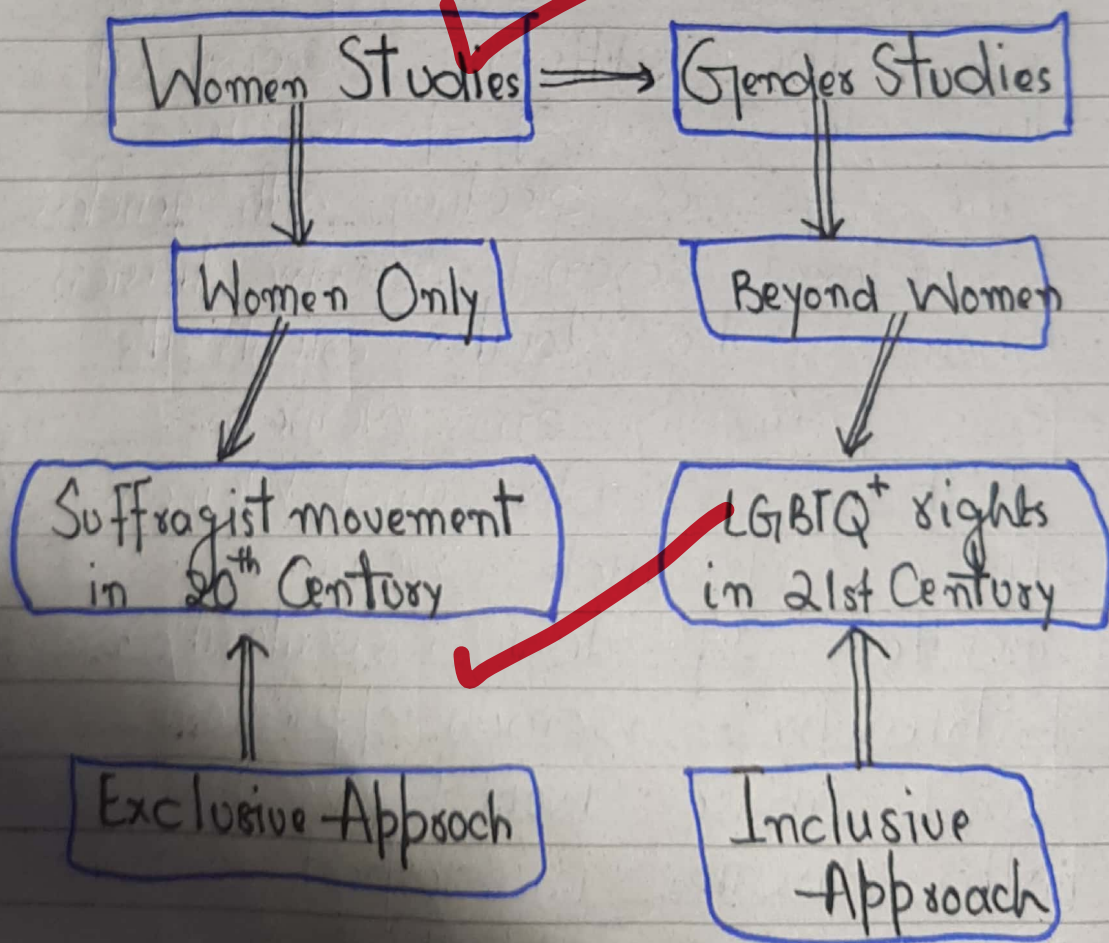 Women Studies
Gender Studies
Women Only
Beyond Women
Suffragist movement
in 20th Century
LGBTQ+ rights
in 21st Century
Exclusive Approch
Inclusive
Approach